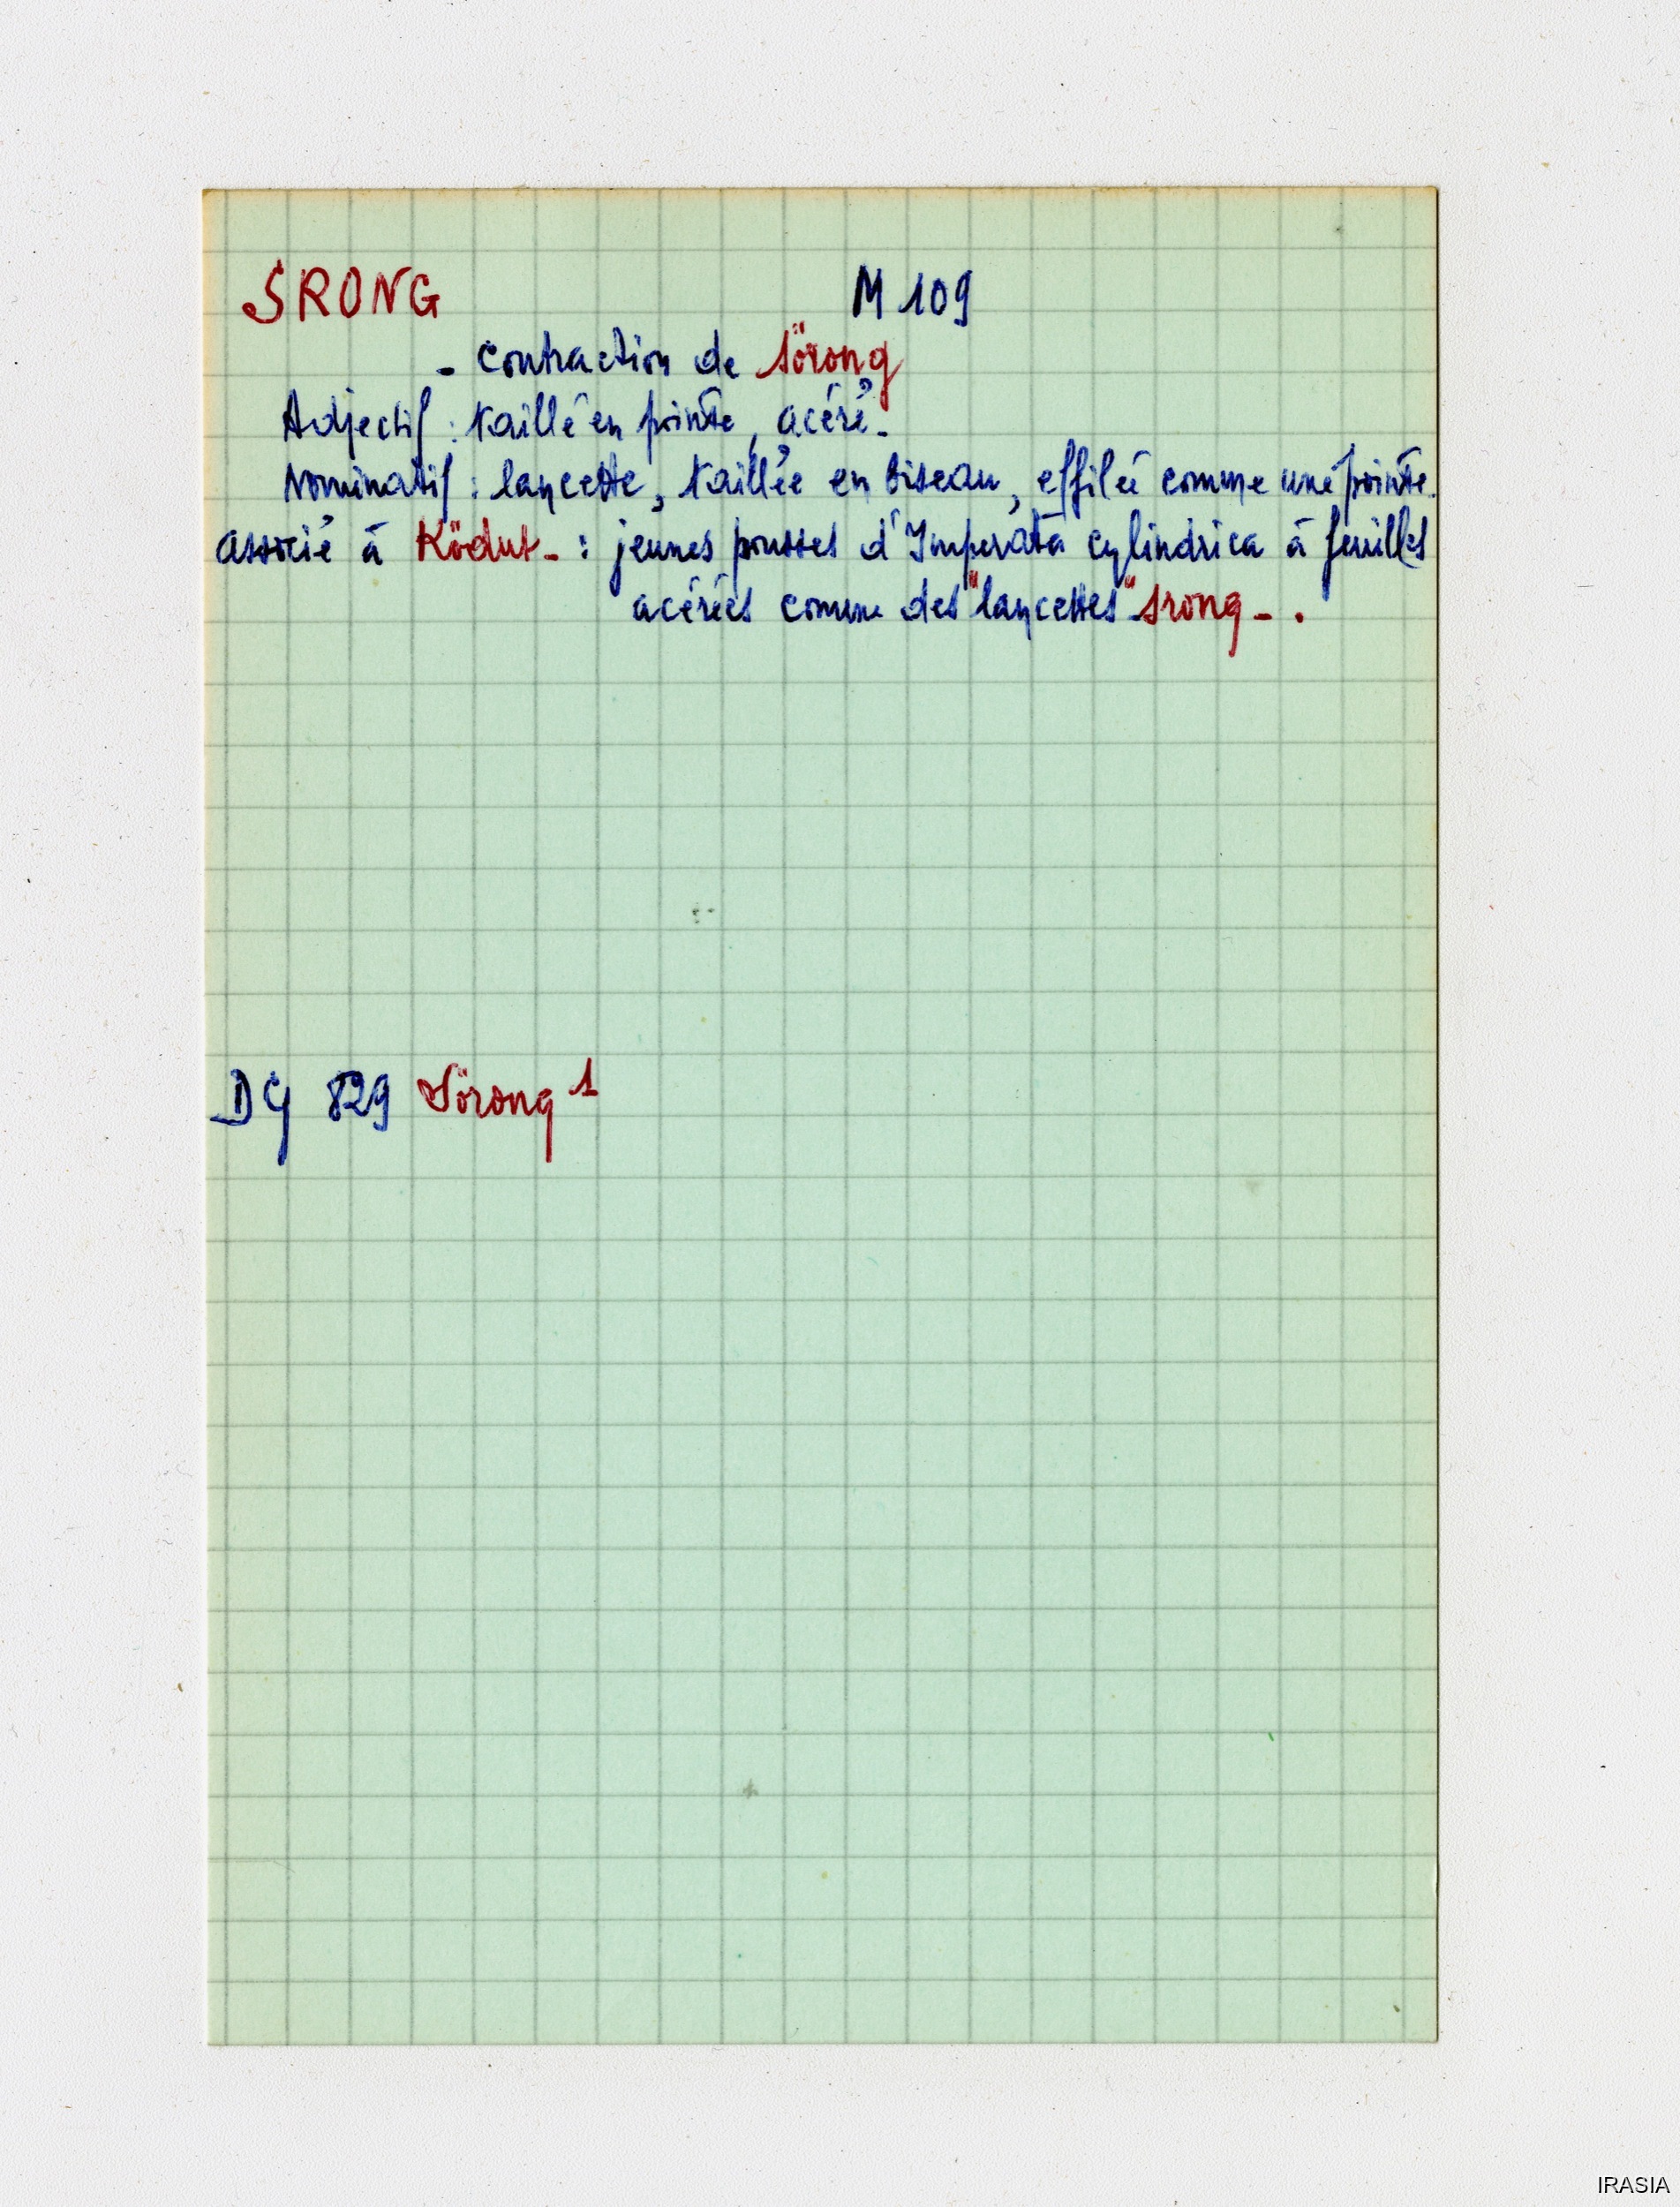 SRONG M 109
- contraction de sörong
Adjectif : taillé en pointe, acéré -
Nominatif : lancette, taillée en biseau, effilée comme une pointe.
associé à Ködut - : jeunes pousses d'Imperata cylindrica à feuilles
acérées comme des "lancettes" srong - .
DG 829 Sörong 1
IRASIA